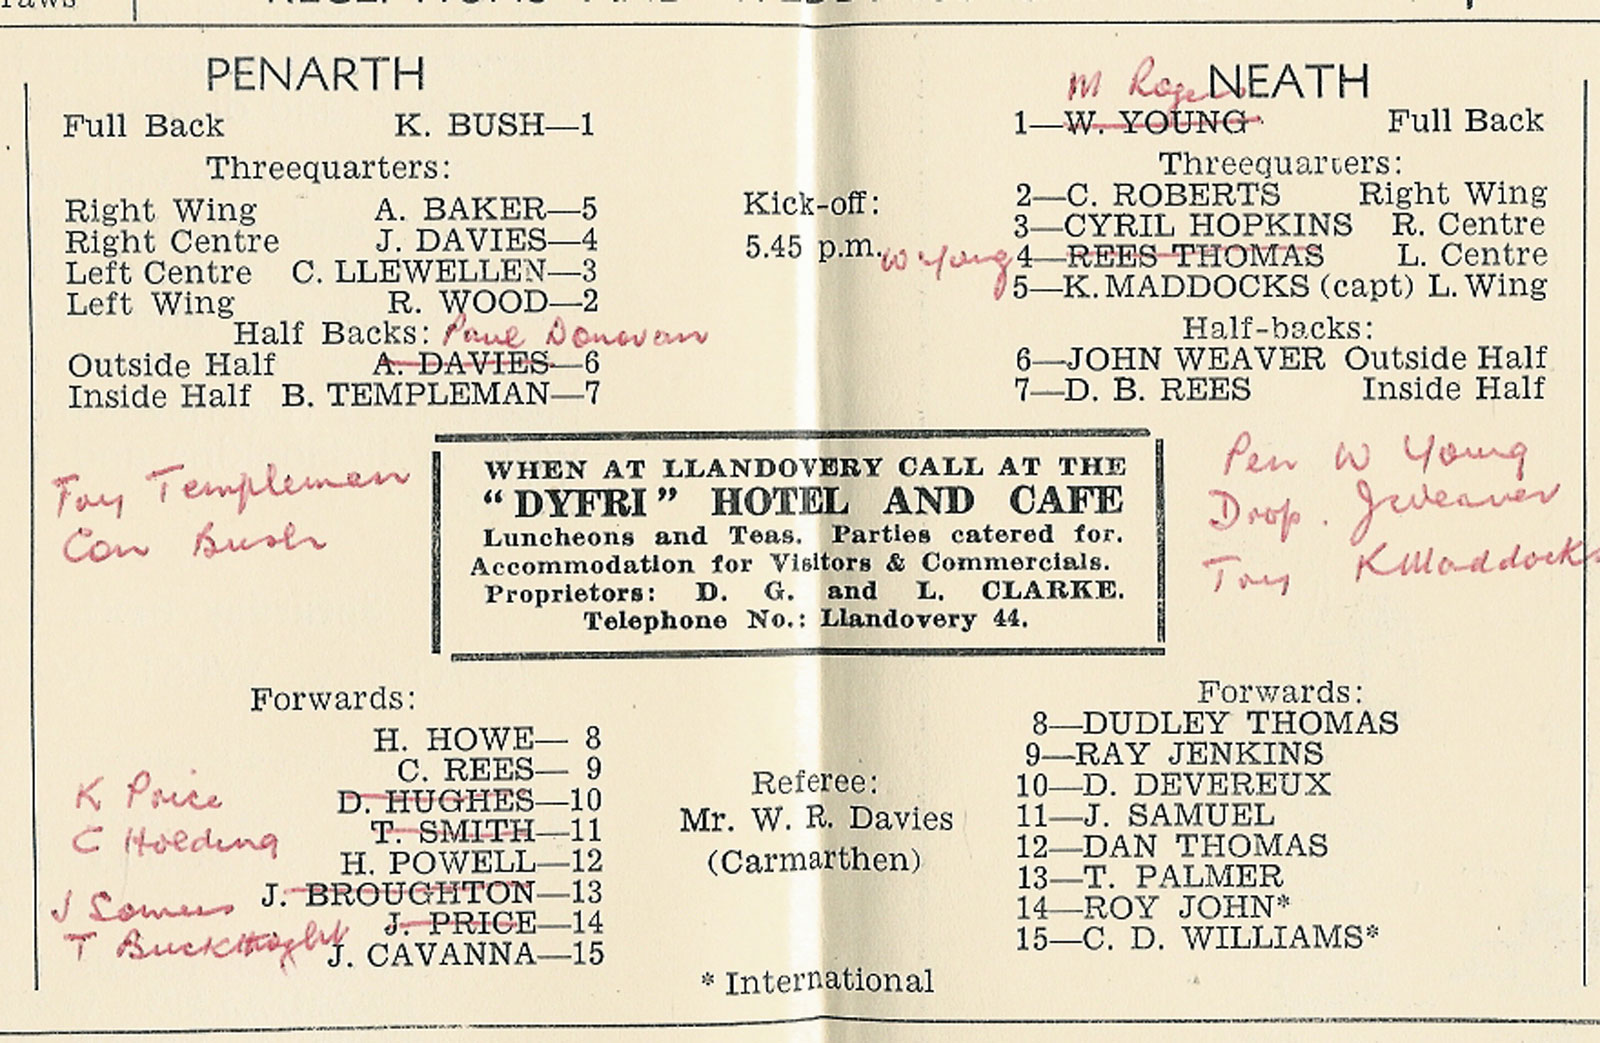 PENARTH
Full Back K. BUSH—1
Threequarters:
Right Wing A. BAKER—5
Right Centre J. DAVIES—4
Left Centre C. LLEWELLEN—3
Left Wing R. WOOD—2
Half Backs: Paul Donovan
Outside Half A. DAVIES—6
Inside Half B. TEMPLEMAN—7
Try Templeman
Con Bush
Forwards:
H. HOWE— 8
C. REES— 9
K Price D. HUGHES—10
C Holding T. SMITH—11
H. POWELL—12
J. BROUGHTON—13
J J. PRICE—14
T J. CAVANNA—15
Kick-off:
5.45 p.m.
WHEN AT LLANDOVERY CALL AT THE
“DYFRI” HOTEL AND CAFE
Luncheons and Teas. Parties catered for.
Accommodation for Visitors & Commercials.
Proprietors: D. G. and L. CLARKE.
Telephone No.: Llandovery 44.
Referee:
Mr. W. R. Davies
(Carmarthen)
* International
M NEATH
1—W. YOUNG Full Back
Threequarters:
2—C. ROBERTS Right Wing
3—CYRIL HOPKINS R. Centre
W Young 4—REES THOMAS L. Centre
5—K. MADDOCKS (capt) L. Wing
Half-backs:
6—JOHN WEAVER Outside Half
7—D. B. REES Inside Half
Pen W Young
Drop. J Weaver
Try K Maddocks
Forwards:
8—DUDLEY THOMAS
9—RAY JENKINS
10—D. DEVEREUX
11—J. SAMUEL
12—DAN THOMAS
13—T. PALMER
14—ROY JOHN*
15—C. D. WILLIAMS*